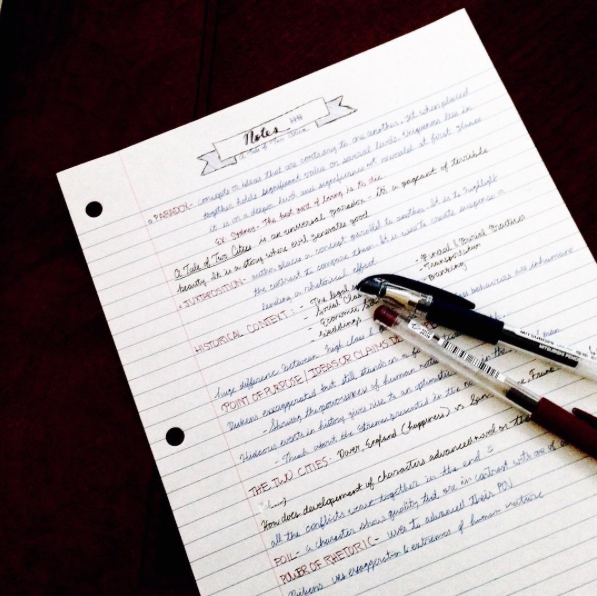 Notes
A Tale of Two Cities
PARADOX - concepts or ideas that are contrary to one another, yet when placed
together holds significant value on several levels. Uniqueness lies in
it is on a deeper level and significance not revealed at first glance
Ex. Sydney - The best part of living is to die.
A Tale of Two Cities is an universal paradox - it's a pageant of terrible
beauty. It is a story where evil generates good.
JUXTAPOSITION - author places a concept parallel to another. It is to highlight
the contrast & compare them. It is used to create suspense or
lending a rhetorical effect
HISTORICAL CONTEXT: - The legal
- Social Class
- Economic
- Weddings
- Funeral & Burial Practices
- Transportation
- Banking
behaviors are inhumane
huge difference between high class &
POINT OF PURPOSE / IDEAS OR CLAIMS
Dickens exaggerated but still stands on a
- Showing the of human nature in the
Hideous events in history give rise to an optimistic
- Think about the extremes presented in the
THE TWO CITIES - Dover, England (happiness) vs.
How does development of characters advanced novel or
all the conflicts come together in the end
FOIL - a character shows quality that are in contrast with
POWER OF RHETORIC - uses to advanced their POV
Dickens uses exaggeration & extremes of human
MITSUBISHI PENCIL